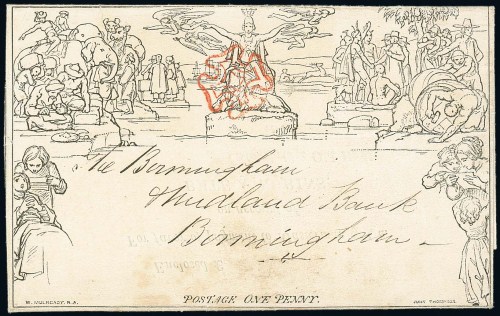 The Birmingham
Midland Bank
Birmingham
POSTAGE ONE PENNY.
W. MULREADY. R.A.
JOHN THOMPSON